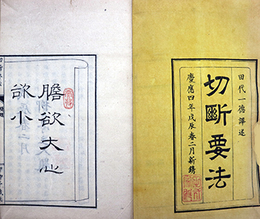 田代一德譯述
切斷要法
慶應四年戊辰春二月新鐫
膽欲大心
欲小